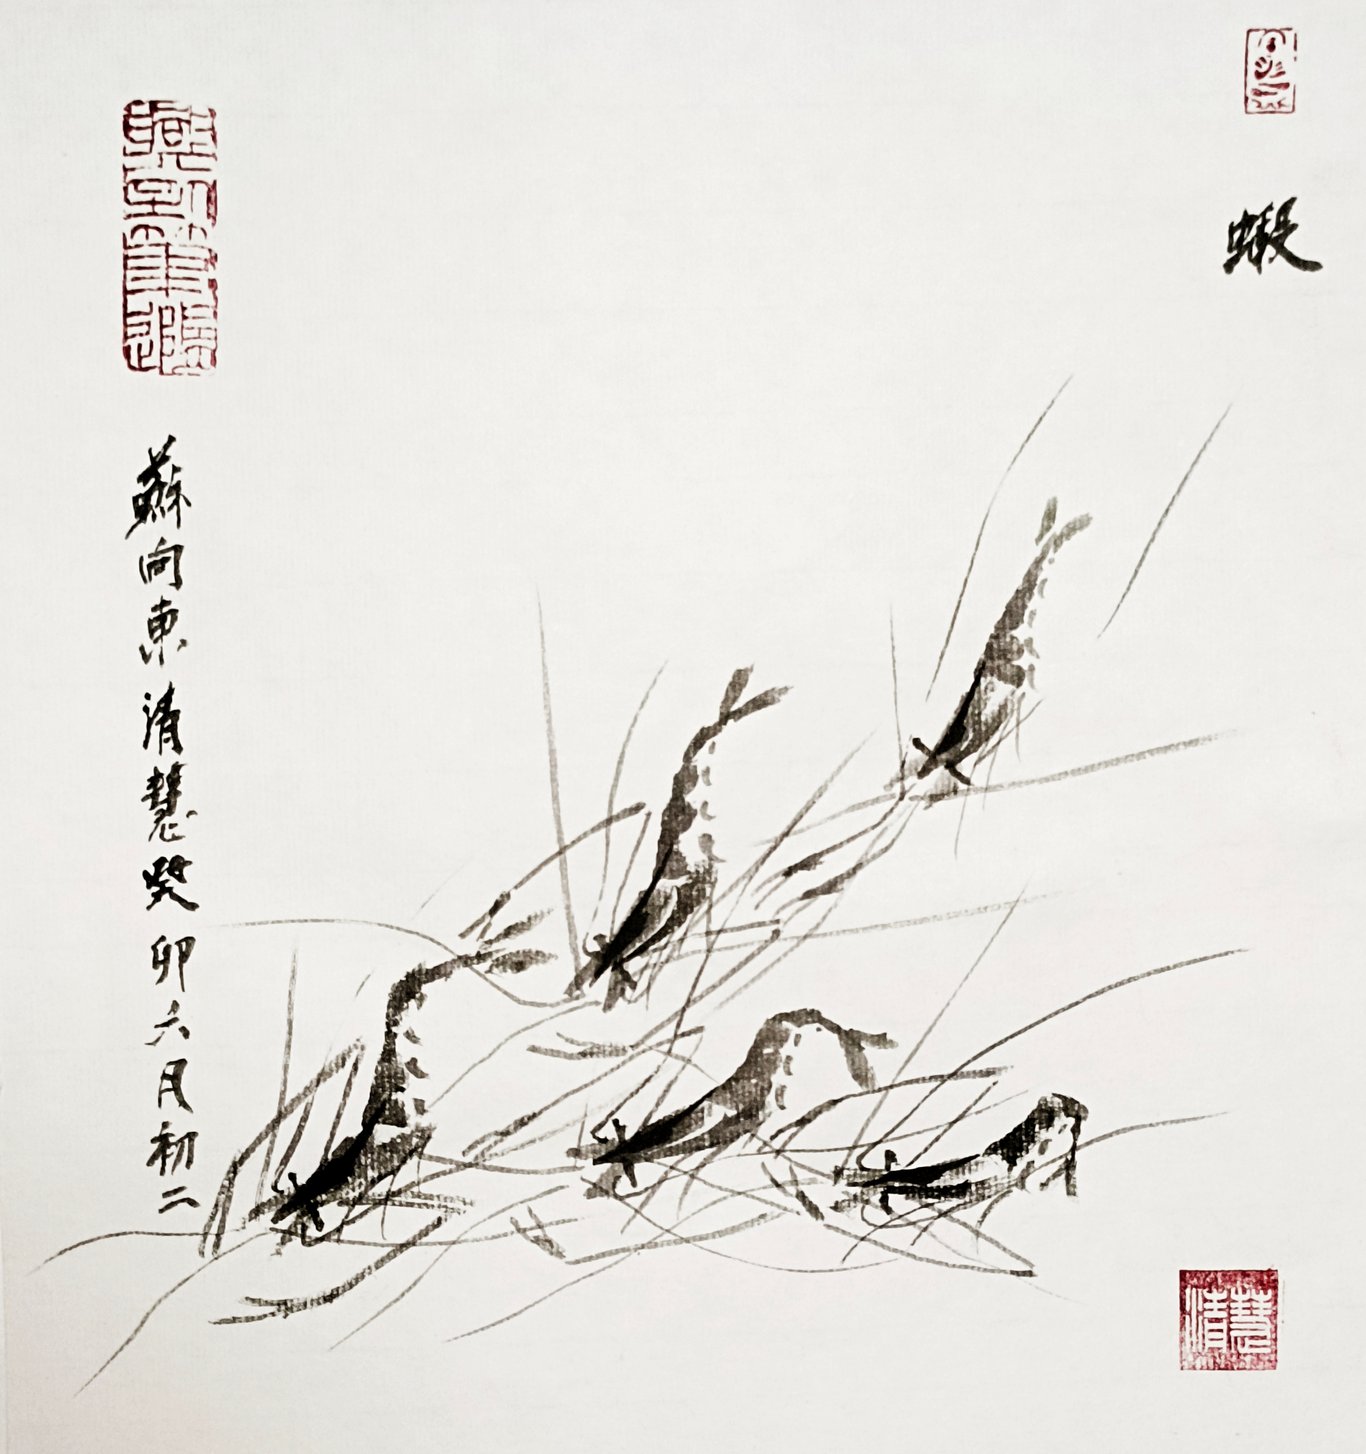 蝦
蘇向東清慧癸卯六月初二
清慧